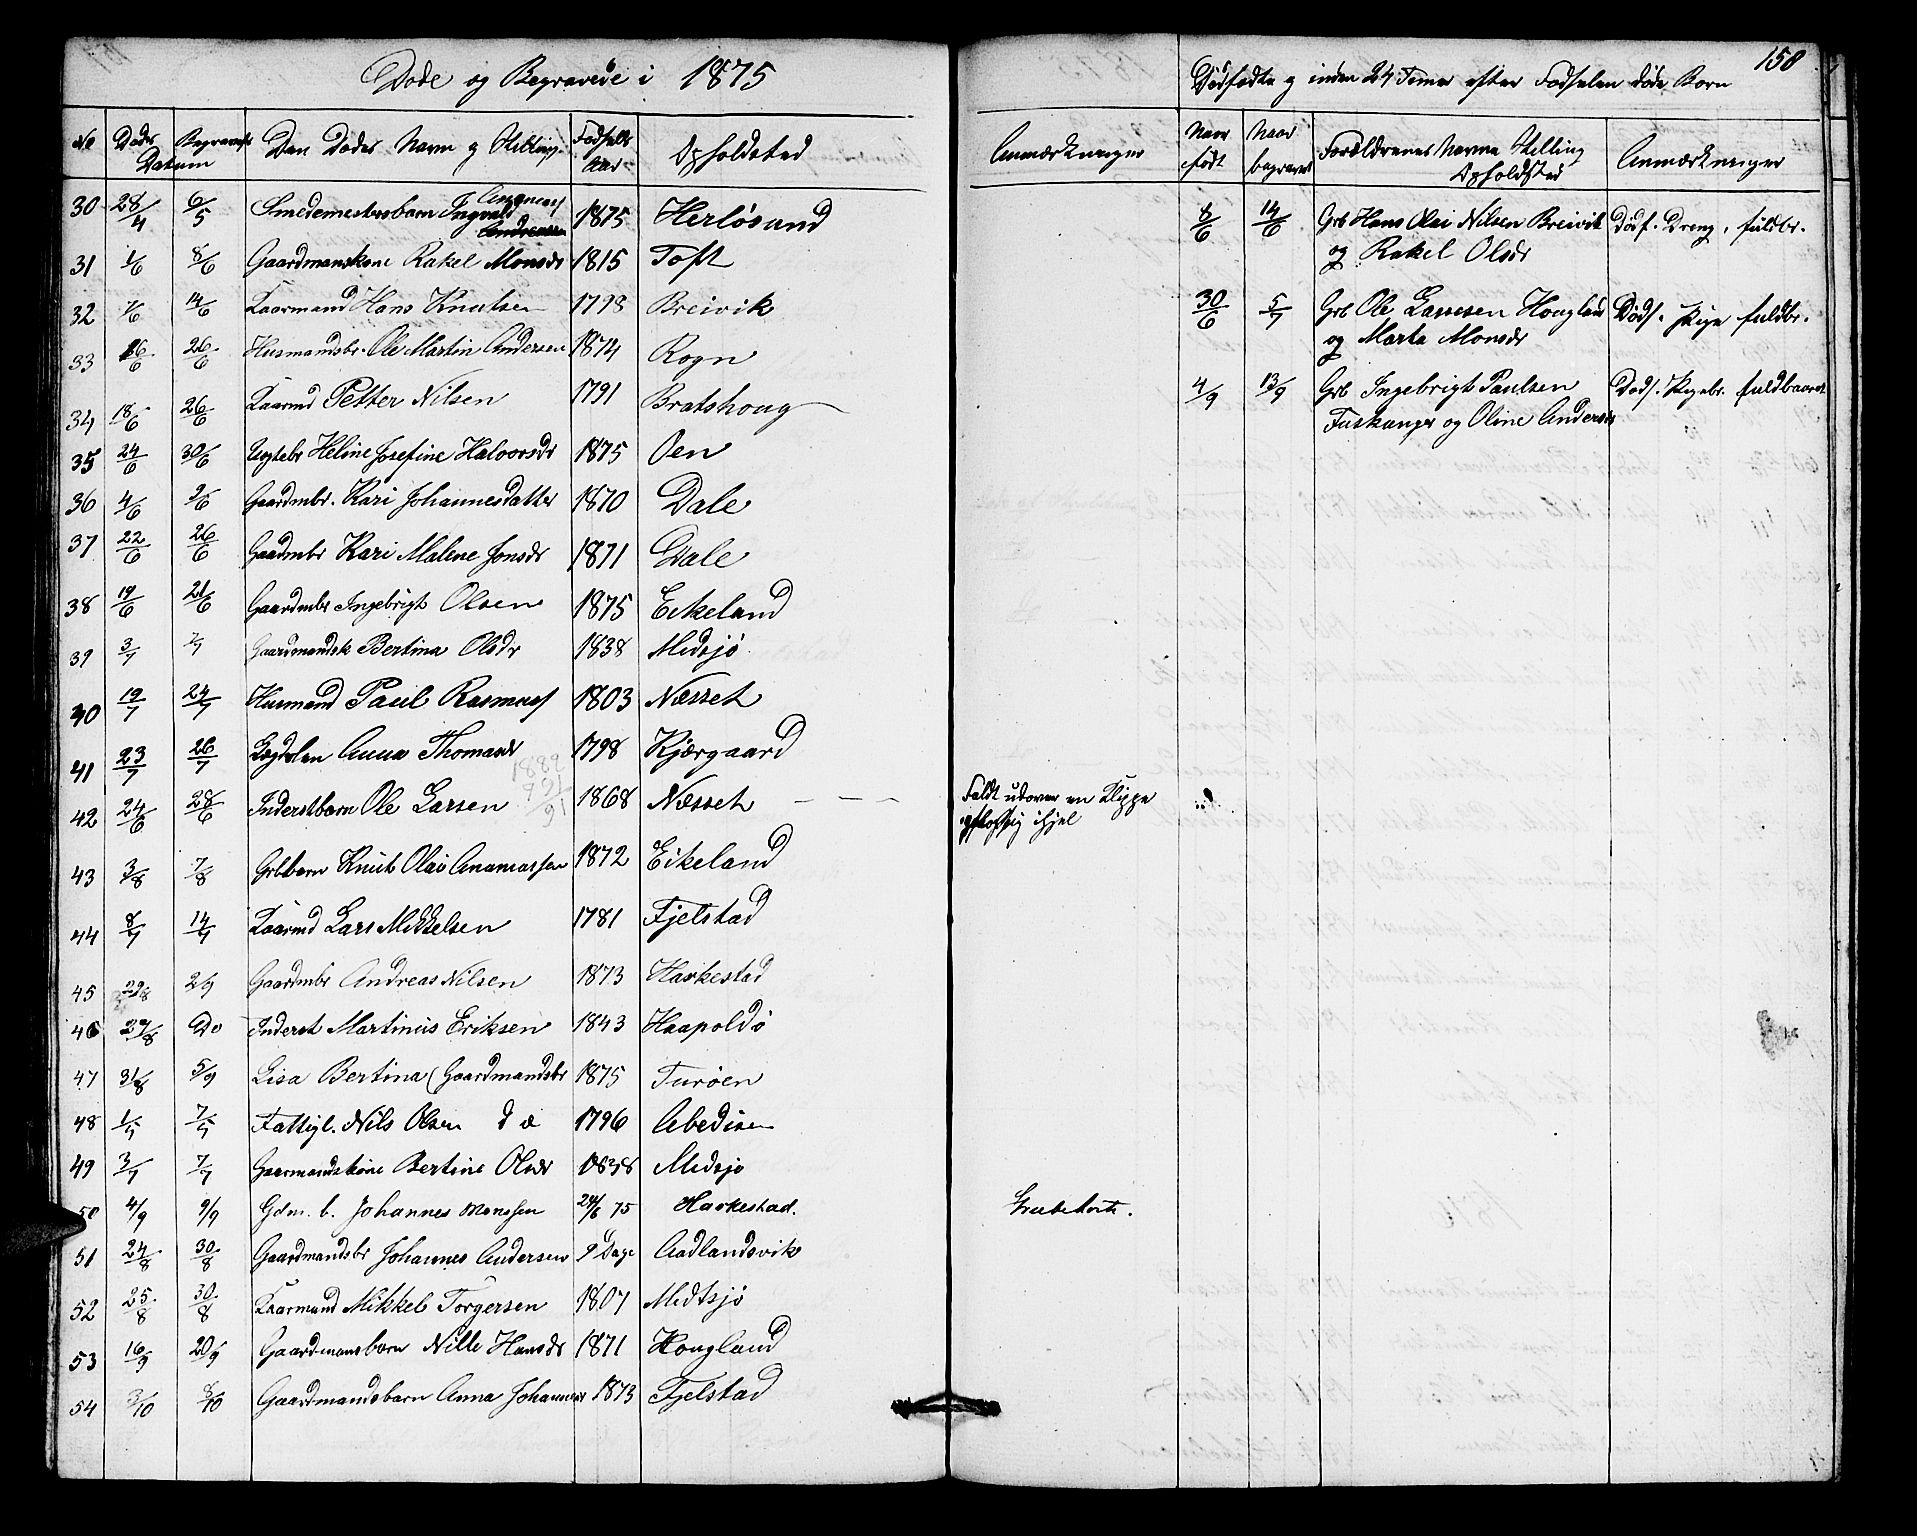 Døde og Begravede i 1875
158
Dødfødte og inden 24 Timer efter Fødselen døde Børn
No Døds Begravels Datum Den Dødes Navn og Stilling Fødsels Aar Opholdsted
Anmærkninger Naar født Naar begravet Forældrenes Navne Stilling Opholdsted Anmærkninger
30 28/4 6/5 Smedemestersbarn Ingvald Ananias/ 1875 Herløsund
31 1/6 8/6 Gaardmanskone Rakel Monsdr 1815 Toft
32 7/6 14/6 Kaarmand Hans Knutsen 1798 Breivik
33 16/6 26/6 Husmandsbr. Ole Martin Andersen 1874 Rogn
34 18/6 26/6 Kaarmd Petter Nilsen 1791 Bratshoug
35 24/6 30/6 Uægtebr Heline Josefine Halvorsdr 1875 Oen
36 4/6 9/6 Gaardmbr. Kari Johannesdatter 1870 Dale
37 22/6 26/6 Gaardmbr Kari Malene Jonsdr 1871 Dale
38 19/6 21/6 Gaardmbr Ingebrigt Olsen 1875 Eikeland
39 3/7 7/7 Gaardmandsk Bertina Olsdr 1838 Midsjø
40 19/7 24/7 Husmand Paul Rasmus/ 1803 Næsset
41 23/7 26/7 Lægdslem Anna Thomasdr 1798 Kjærgaard
1889
42 24/6 28/6 Inderstbarn Ole Larsen 1868 Næsset — — — Faldt udover en Klippe
og slog sig ihjel
43 3/8 7/8 Grbbarn Knut Olai Ananiassen 1872 Eikeland
44 8/7 14/7 Kaarmd Lars Mikkelsen 1781 Fjelstad
45 29/8 2/9 Gaardmbr Andreas Nilsen 1873 Harkestad
46 29/8 Do Inderst Martinus Eriksen 1843 Haapoldø
47 31/8 5/9 Lisa Bertina (Gaardmandsbr 1875 Turøen
48 1/7 7/7 Fattigl. Nils Olsen 1796 Abedisen
49 3/7 7/7 Gaarmandskone Bertine Olsdr 1838 Midsjø
50 4/9 9/9 Gdm. b. Johannes Monssen 24/6 75 Harkestad. Strubehoste.
51 24/8 30/8 Gaardmandsbr Johannes Andersen 9 Dage Aadlandsvik
52 25/8 30/8 Kaarmand Mikkel Torgersen 1807 Midtsjø
53 16/9 20/9 Gaardmansbarn Nille Hansdr 1871 Hougland
54 3/10 8/10 Gaardmandsbarn Anna Johannesdr 1873 Fjelstad
8/6 14/6 Grb Hans Olai Nilsen Breivik Dødf. Dreng, fuldbr.
og Rakel Olsdr
30/6 5/7 Grb Ole Larssen Hougland Døds. Pige fuldbr.
og Marta Monsdr
4/9 13/9 Grb Ingebrigt Paulsen Døds. Pigebr. fuldbaaret
Tuskanger og Oline Andersdr